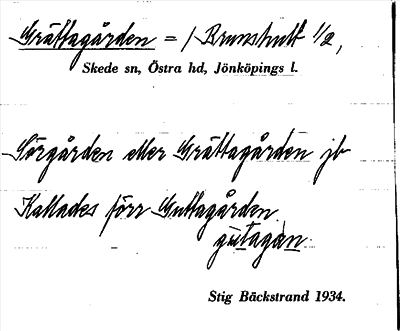 Grättagården = / Brunshult 1/2,
Skede sn, Östra hd, Jönköpings l.
Sörgården eller Grättagården jb
Kallades förr Guttagården.
gutagan.
Stig Bäckstrand 1934.